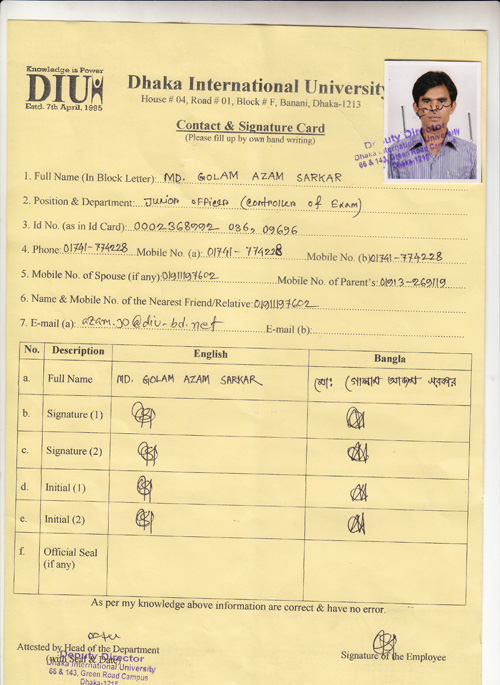 Knowledge is Power
DIU
Estd. 7th April, 1995
Dhaka International University
House # 04, Road # 01, Block # F, Banani, Dhaka-1213
Contact & Signature Card
(Please fill up by own hand writing)
Deputy Director
Dhaka International University
66 & 143, Green Road Campus
Dhaka-1215
1. Full Name (In Block Letter): MD. GOLAM AZAM SARKAR
2. Position & Department: Junior officer (Controller of Exam)
3. Id No. (as in Id Card): 0002368992 036, 09696
4. Phone: 01741-774228 Mobile No. (a): 01741-774228 Mobile No. (b) 01741-774228
5. Mobile No. of Spouse (if any): 01911197602 Mobile No. of Parent's: 01913-269119
6. Name & Mobile No. of the Nearest Friend/Relative: 01911197602
7. E-mail (a): azam.90@diu-bd.net E-mail (b):
No. Description English Bangla
a. Full Name MD. GOLAM AZAM SARKAR মো: গোলাম আজম সরকার
b. Signature (1)
c. Signature (2)
d. Initial (1)
e. Initial (2)
f. Official Seal
(if any)
As per my knowledge above information are correct & have no error.
Attested by Head of the Department
(with Seal & Date)
Signature of the Employee
Deputy Director
Dhaka International University
66 & 143, Green Road Campus
Dhaka-1215